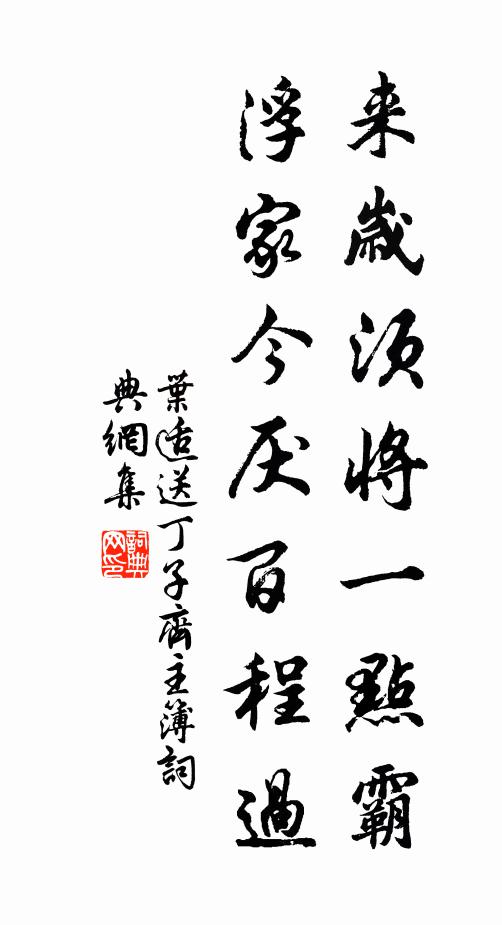 来歲須將一點霸
浮家今厌百程過
葉适送丁子齊主簿詞
典網集
詞典
网印